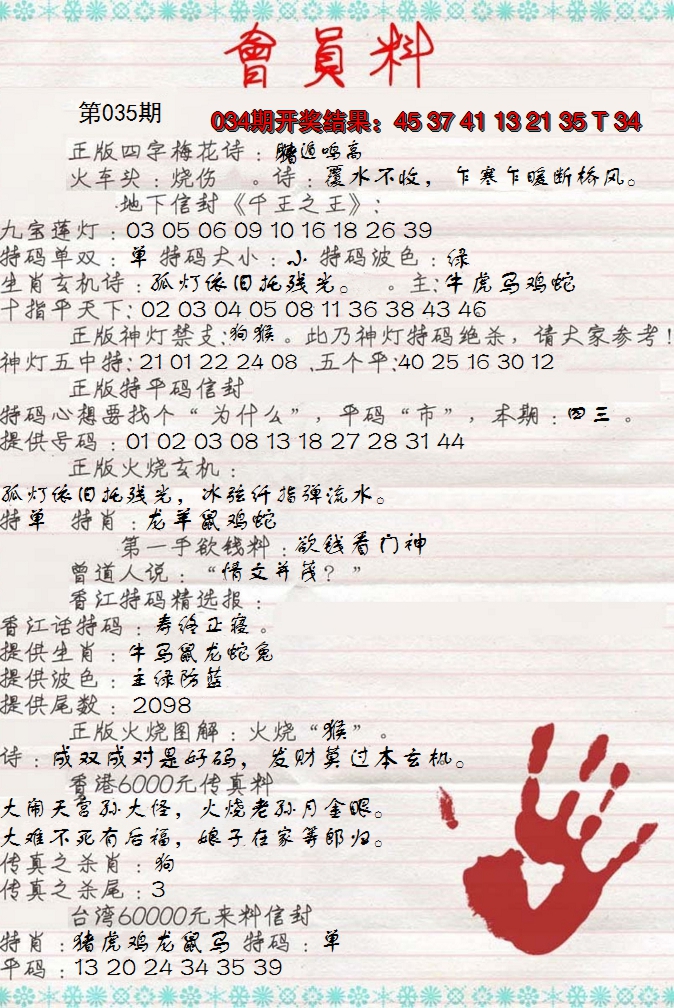 會員料
第035期
034期开奖结果：45 37 41 13 21 35 T 34
正版四字梅花诗：鹏遁鸣高
火车头：烧伤 。诗：覆水不收，乍寒乍暖断桥风。
地下信封《千王之王》：
九宝莲灯：03 05 06 09 10 16 18 26 39
特码单双：单 特码大小：小 特码波色：绿
生肖玄机诗：孤灯依旧托残光。 。主：牛虎马鸡蛇
十指平天下：02 03 04 05 08 11 36 38 43 46
正版神灯禁支：狗猴。此乃神灯特码绝杀，请大家参考！
神灯五中特：21 01 22 24 08 .五个平：40 25 16 30 12
正版特平码信封
特码心想要找个“为什么”，平码“市”，本期：四三。
提供号码：01 02 03 08 13 18 27 28 31 44
正版火烧玄机：
孤灯依旧托残光，冰弦纤指弹流水。
特单 特肖：龙羊鼠鸡蛇
第一手欲钱料：欲钱看门神
曾道人说：“情文并茂？”
香江特码精选报：
香江话特码：寿终正寝。
提供生肖：牛马鼠龙蛇兔
提供波色：主绿防蓝
提供尾数：2098
正版火烧图解：火烧“猴”。
诗：成双成对是好码，发财莫过本玄机。
香港6000元传真料
大闹天宫孙大怪，火烧老孙月金眼。
大难不死有后福，娘子在家等郎归。
传真之杀肖：狗
传真之杀尾：3
台湾60000元来料信封
特肖：猪虎鸡龙鼠马 特码：单
平码：13 20 24 34 35 39